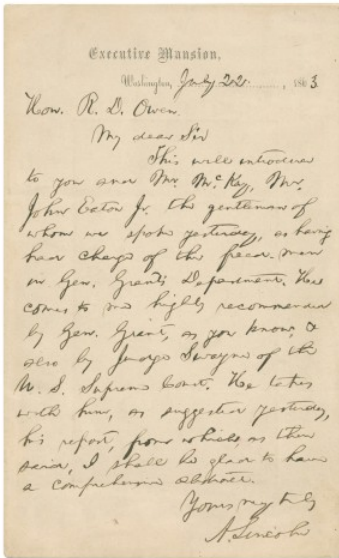 Executive Mansion,
Washington, July 22, 1863.
Hon. R. D. Owen
My dear Sir
This will introduce
to you and Mr. McKay, Mr.
John Eaton Jr. the gentleman of
whom we spoke yesterday, as having
had charge of the freed-men
in Gen. Grant's Department. He
comes to me highly recommended
by Gen. Grant, as you know, &
also by Judge Swayne of the
U. S. Supreme Court. He takes
with him, as suggested yesterday,
his report, from which, as then
said, I shall be glad to have
a comprehensive abstract.
Yours very truly
A. Lincoln